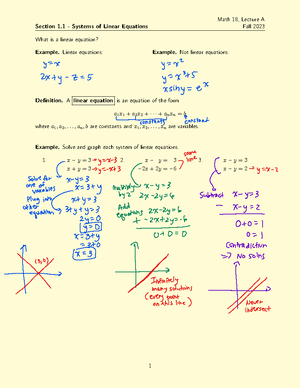 Math 18, Lecture A
Section 1.1 - Systems of Linear Equations
Fall 2023
What is a linear equation?
Example. Linear equations:
Example. Not linear equations:
y=x
y=x²
2x+y-z=5
y=x³+5
x sin y = eˣ
Definition. A linear equation is an equation of the form
a₁x₁ + a₂x₂ + ··· + aₙxₙ = b
constants
constant
where a₁, a₂, ..., aₙ, b are constants and x₁, x₂, ..., xₙ are variables.
Example. Solve and graph each systems of linear equations.
1.
x − y = 3 → y=x-3
x + y = 3 → y=-x+3
Solve for
one of
variables
x-y=3
x=3+y
Plug into
other
equation
x+y=3
3+y+y=3
2y=0
y=0
x=3+y
=3+0
x=3
(3,0)
2.
x − y = 3
−2x + 2y = −6
same
line
multiply
by 2
x-y=3
2x-2y=6
Add
equations
2x-2y=6
+ -2x+2y=-6
0+0=0
Infinitely
many solutions
(every point
on this line)
x − y = 3
x − y = 2 → y=x-2
Subtract
x-y=3
x-y=2
0+0=1
0=1
Contradiction
⇒ No solns
Never
intersect
1